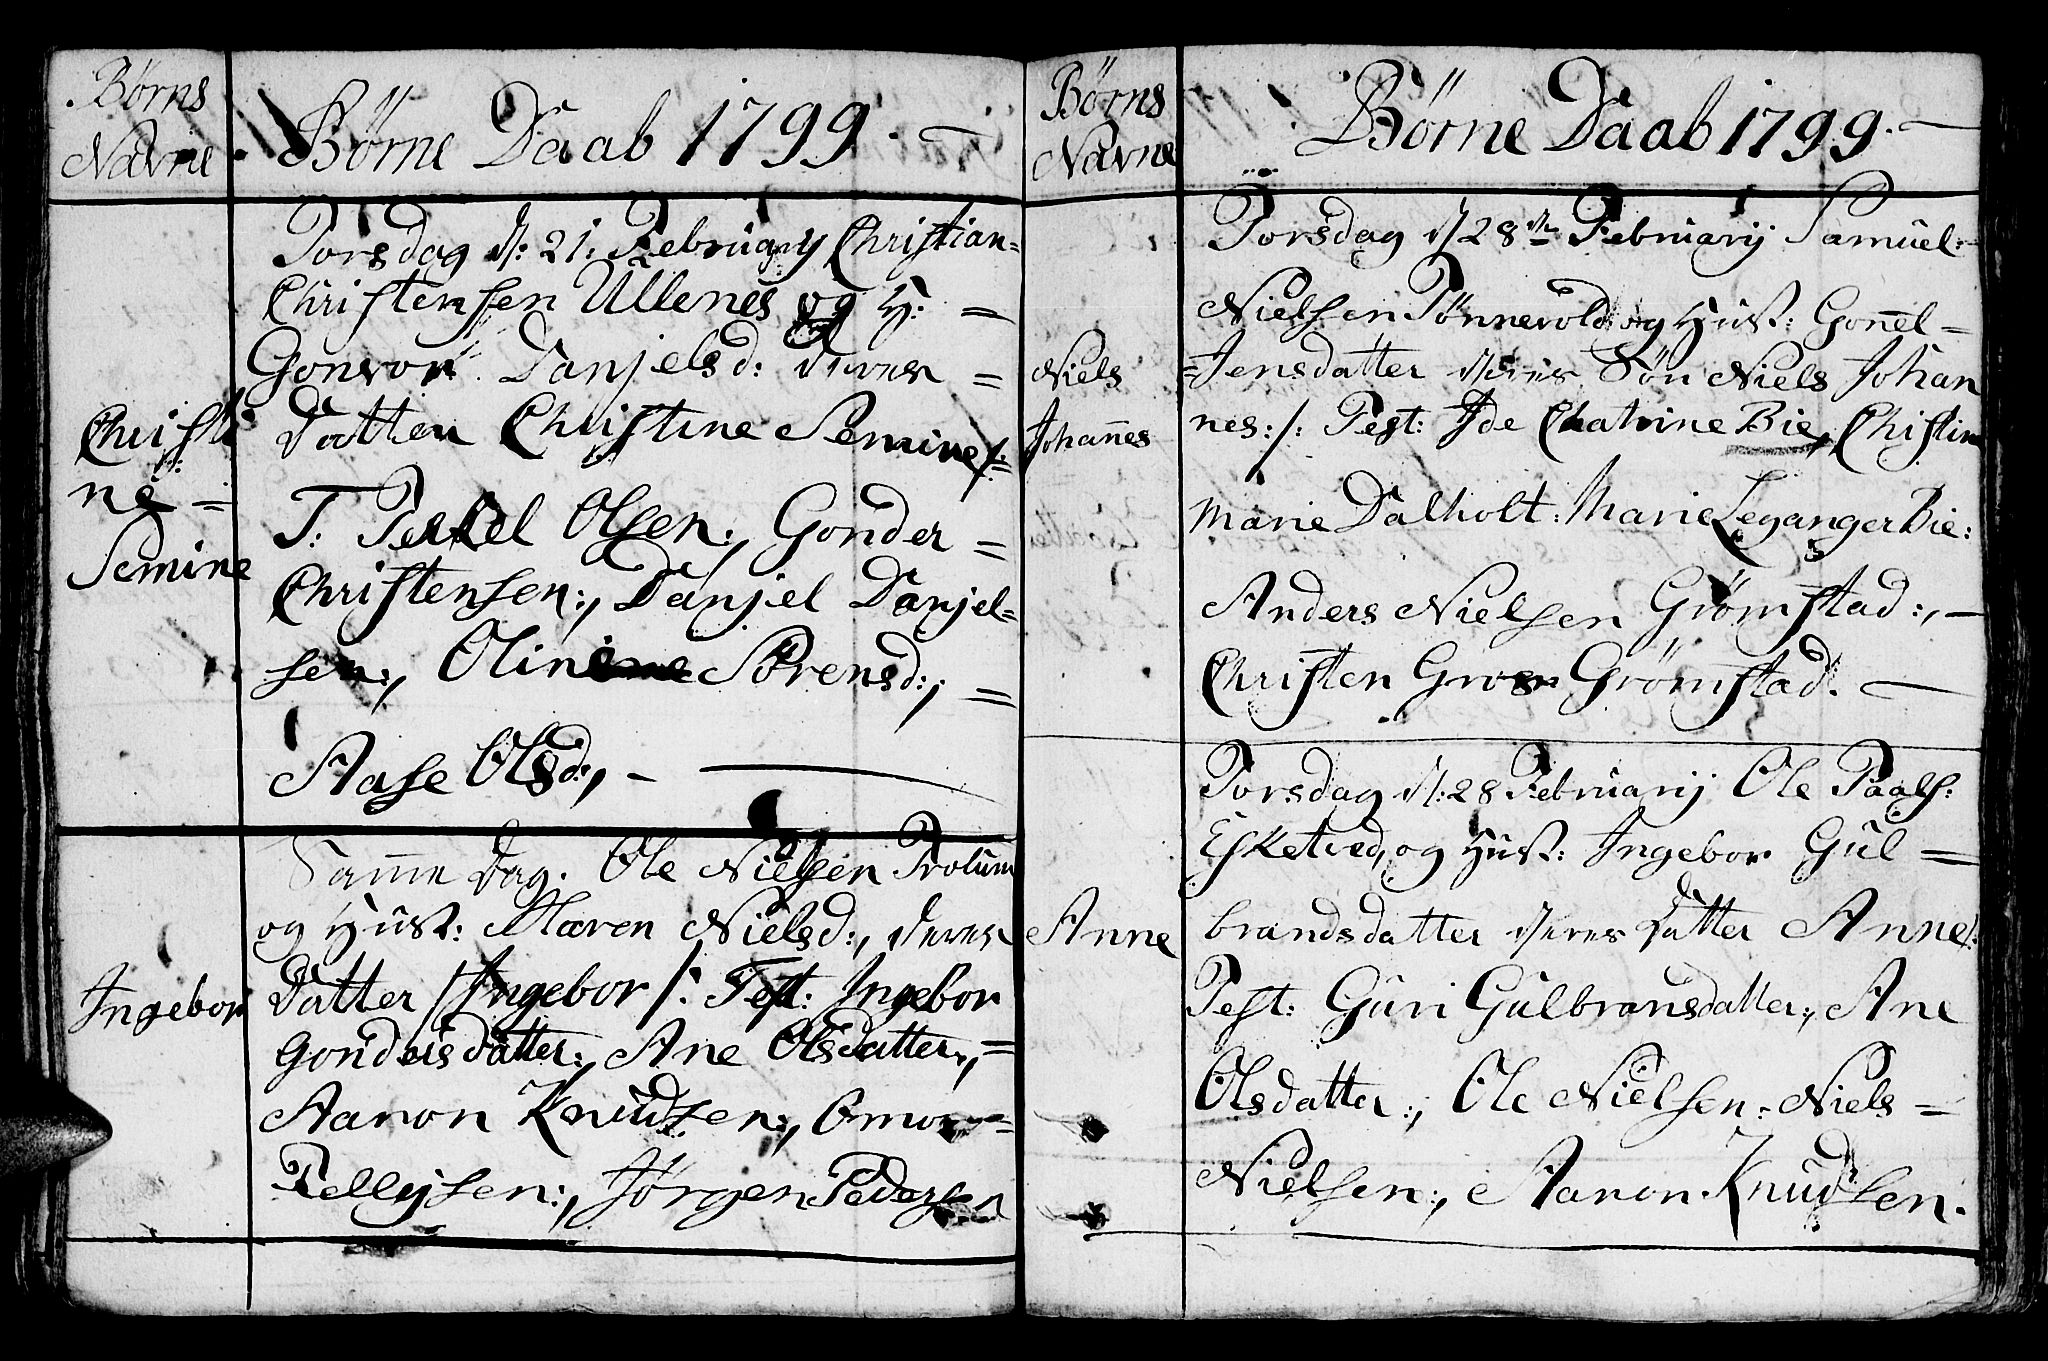 Børns
Navne
Børne Daab 1799.
Torsdag d: 21: Februarij Christian
Christensen Ullenes og H:
Gonvor Danjelsd: deres
Christi
ne
Semine
Datter Christine Semine /:
T: Terkel Olsen:, Gonder
Christensen:, Danjel Danjel
sen:, Oline Sørensd:,
Aase Olsd:,
Samme Dag. Ole Nielsen Trolum
og Hust: Maren Nielsd:, deres
Ingebor
Datter /: Ingebor /: Test: Ingebor
Gondersdatter:, Ane Olsdatter:,
Aaron Knudsen:, Omor
Tellejsen:, Jørgen Pedersen
Børns
Navne
Børne Daab 1799.
Torsdag d 28de Februarij Samuel
Nielsen Tønnevold og Hust: Gonnel
Niels
Johannes
Jensdatter deres Søn Niels Johan
nes: /: Test: Ide Chatrine Bie, Christine
Marie Dalholt: Marie Leganger Bie:
Anders Nielsen Grømstad:,
Christen Gros Grømstad.
Torsdag d: 28 Februarij Ole Paals:
Esketved, og Hust: Ingebor Gul
Anne
brandsdatter deres Datter Anne /:
Test: Guri Gulbransdatter:, Ane
Olsdatter:, Ole Nielsen. Niels
Nielsen:, Aaron Knudsen.